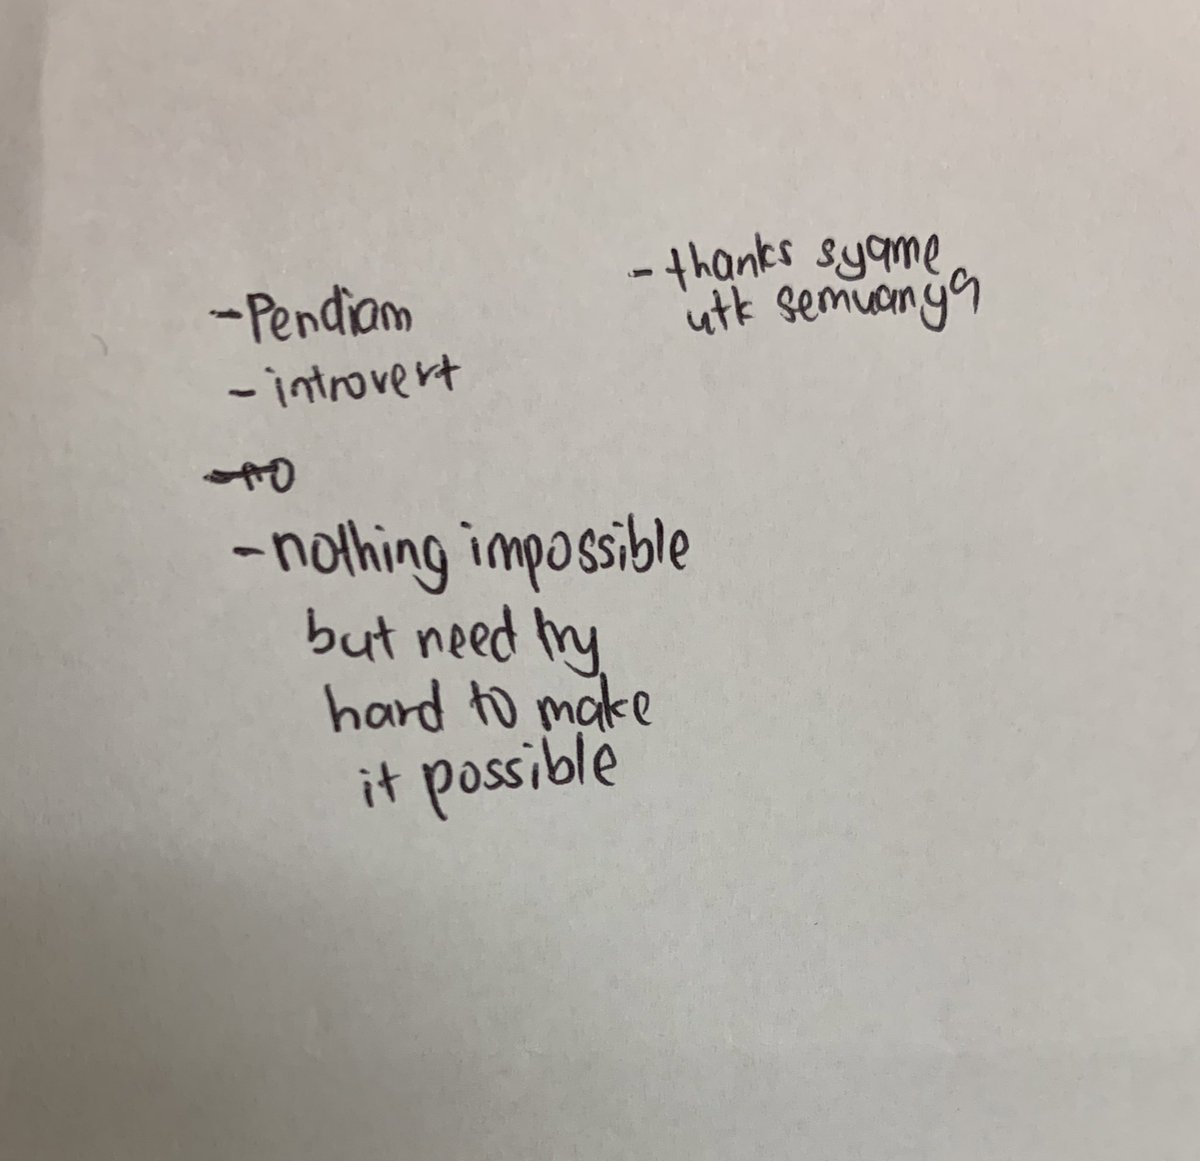 - Pendiam
- introvert
- nothing impossible
but need try
hard to make
it possible
- thanks syame
utk semuanya